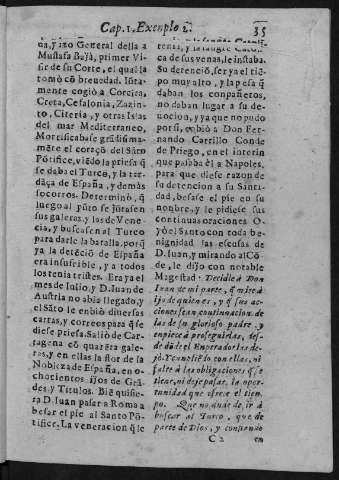 Cap. 1. Exenplo 2. 35
ña, y izo General della a
Mustafa Baja, primer Vi-
sir de su Corte, el qual la
tomò cõ brevedad. Iũta-
mente cogiò a Corcira,
Creta, Cefalonia, Zazin-
to, Citeria, y otras Islas
del mar Mediterraneo,
Mortificabase grãdisima-
mẽte el coraçõ del Sãto
Põtifice, viẽdo la priesa q̃
se daba el Turco, y la tar-
dãça de España, y demàs
socorros. Determinò, q̃
luego al pũto se jũtasen
sus galeras, y los de Vene-
cia, y buscasen al Turco
para darle la batalla, porq̃
ya la detẽciõ de España
era insufrible, y a todos
los tenia tristes. Era ya el
mes de Iulio, y D. Iuan de
Austria no abia llegado, y
el Sãto le enbiò diversos
cartas, y correos para q̃ se
diese priesa. Saliò de Car-
tagena cõ quarẽta gale-
ras, y en ellas la flor de la
Nobleza de España, en o-
chocientos ijos de Grã-
des, y Titulos. Biẽ quisie-
ra D. Iuan pasar a Roma a
besar el pie al Santo Põ-
tifice. La veneracion q̃ le
tenia, y la sangre Catoli-
ca de sus venas, le instaba.
Su detenciõ, ser ya el tiẽ-
po muy alto, y la pesa q̃
daban los conpañeros,
no daban lugar a su de-
vocion, y ya que no pudo
por si, enbiò a Don Fer-
nando Carrillo Conde
de Priego, en el interin
que pasaba èl a Napoles,
para que diese razon de
su detencion a su Santi-
dad, besase el pie en su
nonbre, y le pidiese sus
continuas oraciones O-
yò el Santo con toda be-
nignidad las escusas de
D. Iuan, y mirando al Cõ-
de, le dijo con notable
Magestad: Decidle à Don
Iuan de mi parte, q̃ mire à
ijo de quien es, y q̃ sus ac-
ciones sean continuacion de
las de su glorioso padre, y
enpiece à proseguirlas, des-
de dõde el Enperador las de-
jò. Y cunplido con ellas, ni
falte à las obligaciones q̃ se
tiene, ni deje pasar, la opor-
tunidad que ofrece el tiem-
po. Que no dude de ir à
buscar al Turco, que de
parte de Dios, y confiando
C 2 en